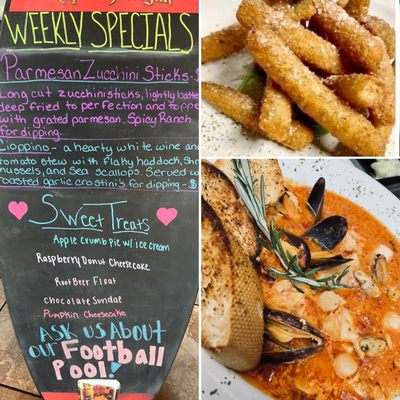 WEEKLY SPECIALS
Parmesan Zucchini Sticks
Long cut zucchini sticks, lightly batter
deep fried to perfection and toppe
with grated parmesan. Spicy Ranch
for dipping.
Cioppino - a hearty white wine and
tomato stew with flaky haddock, Shr
mussels, and Sea scallops. Served w
roasted garlic crostini's for dipping - $
Sweet Treats
Apple crumb pie w/ ice cream
Raspberry Donut Cheesecake
Root Beer Float
Chocolate Sundae
Pumpkin Cheesecake
Ask us About
our Football
Pool!